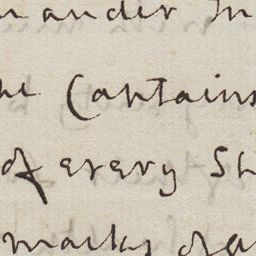 mander in
he Captains
of every Sh
marks of a